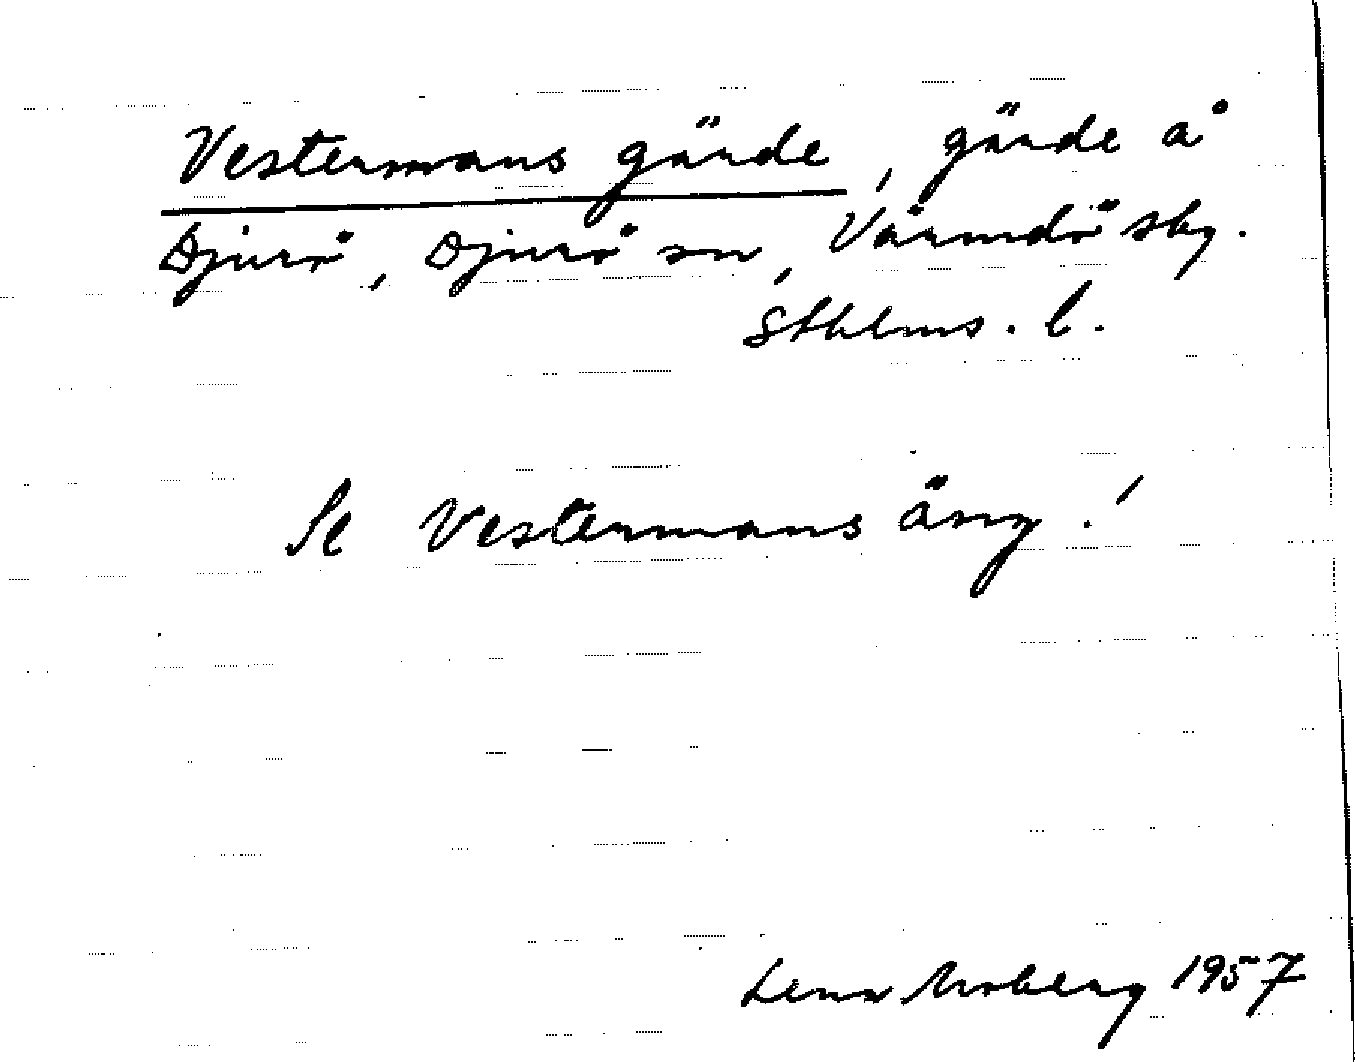 Vestermans gärde, gärde å
Djurö, Djurö sn, Värmdö skg.
Sthlms. l.
Se Vestermans äng!
Lena Moberg 1957